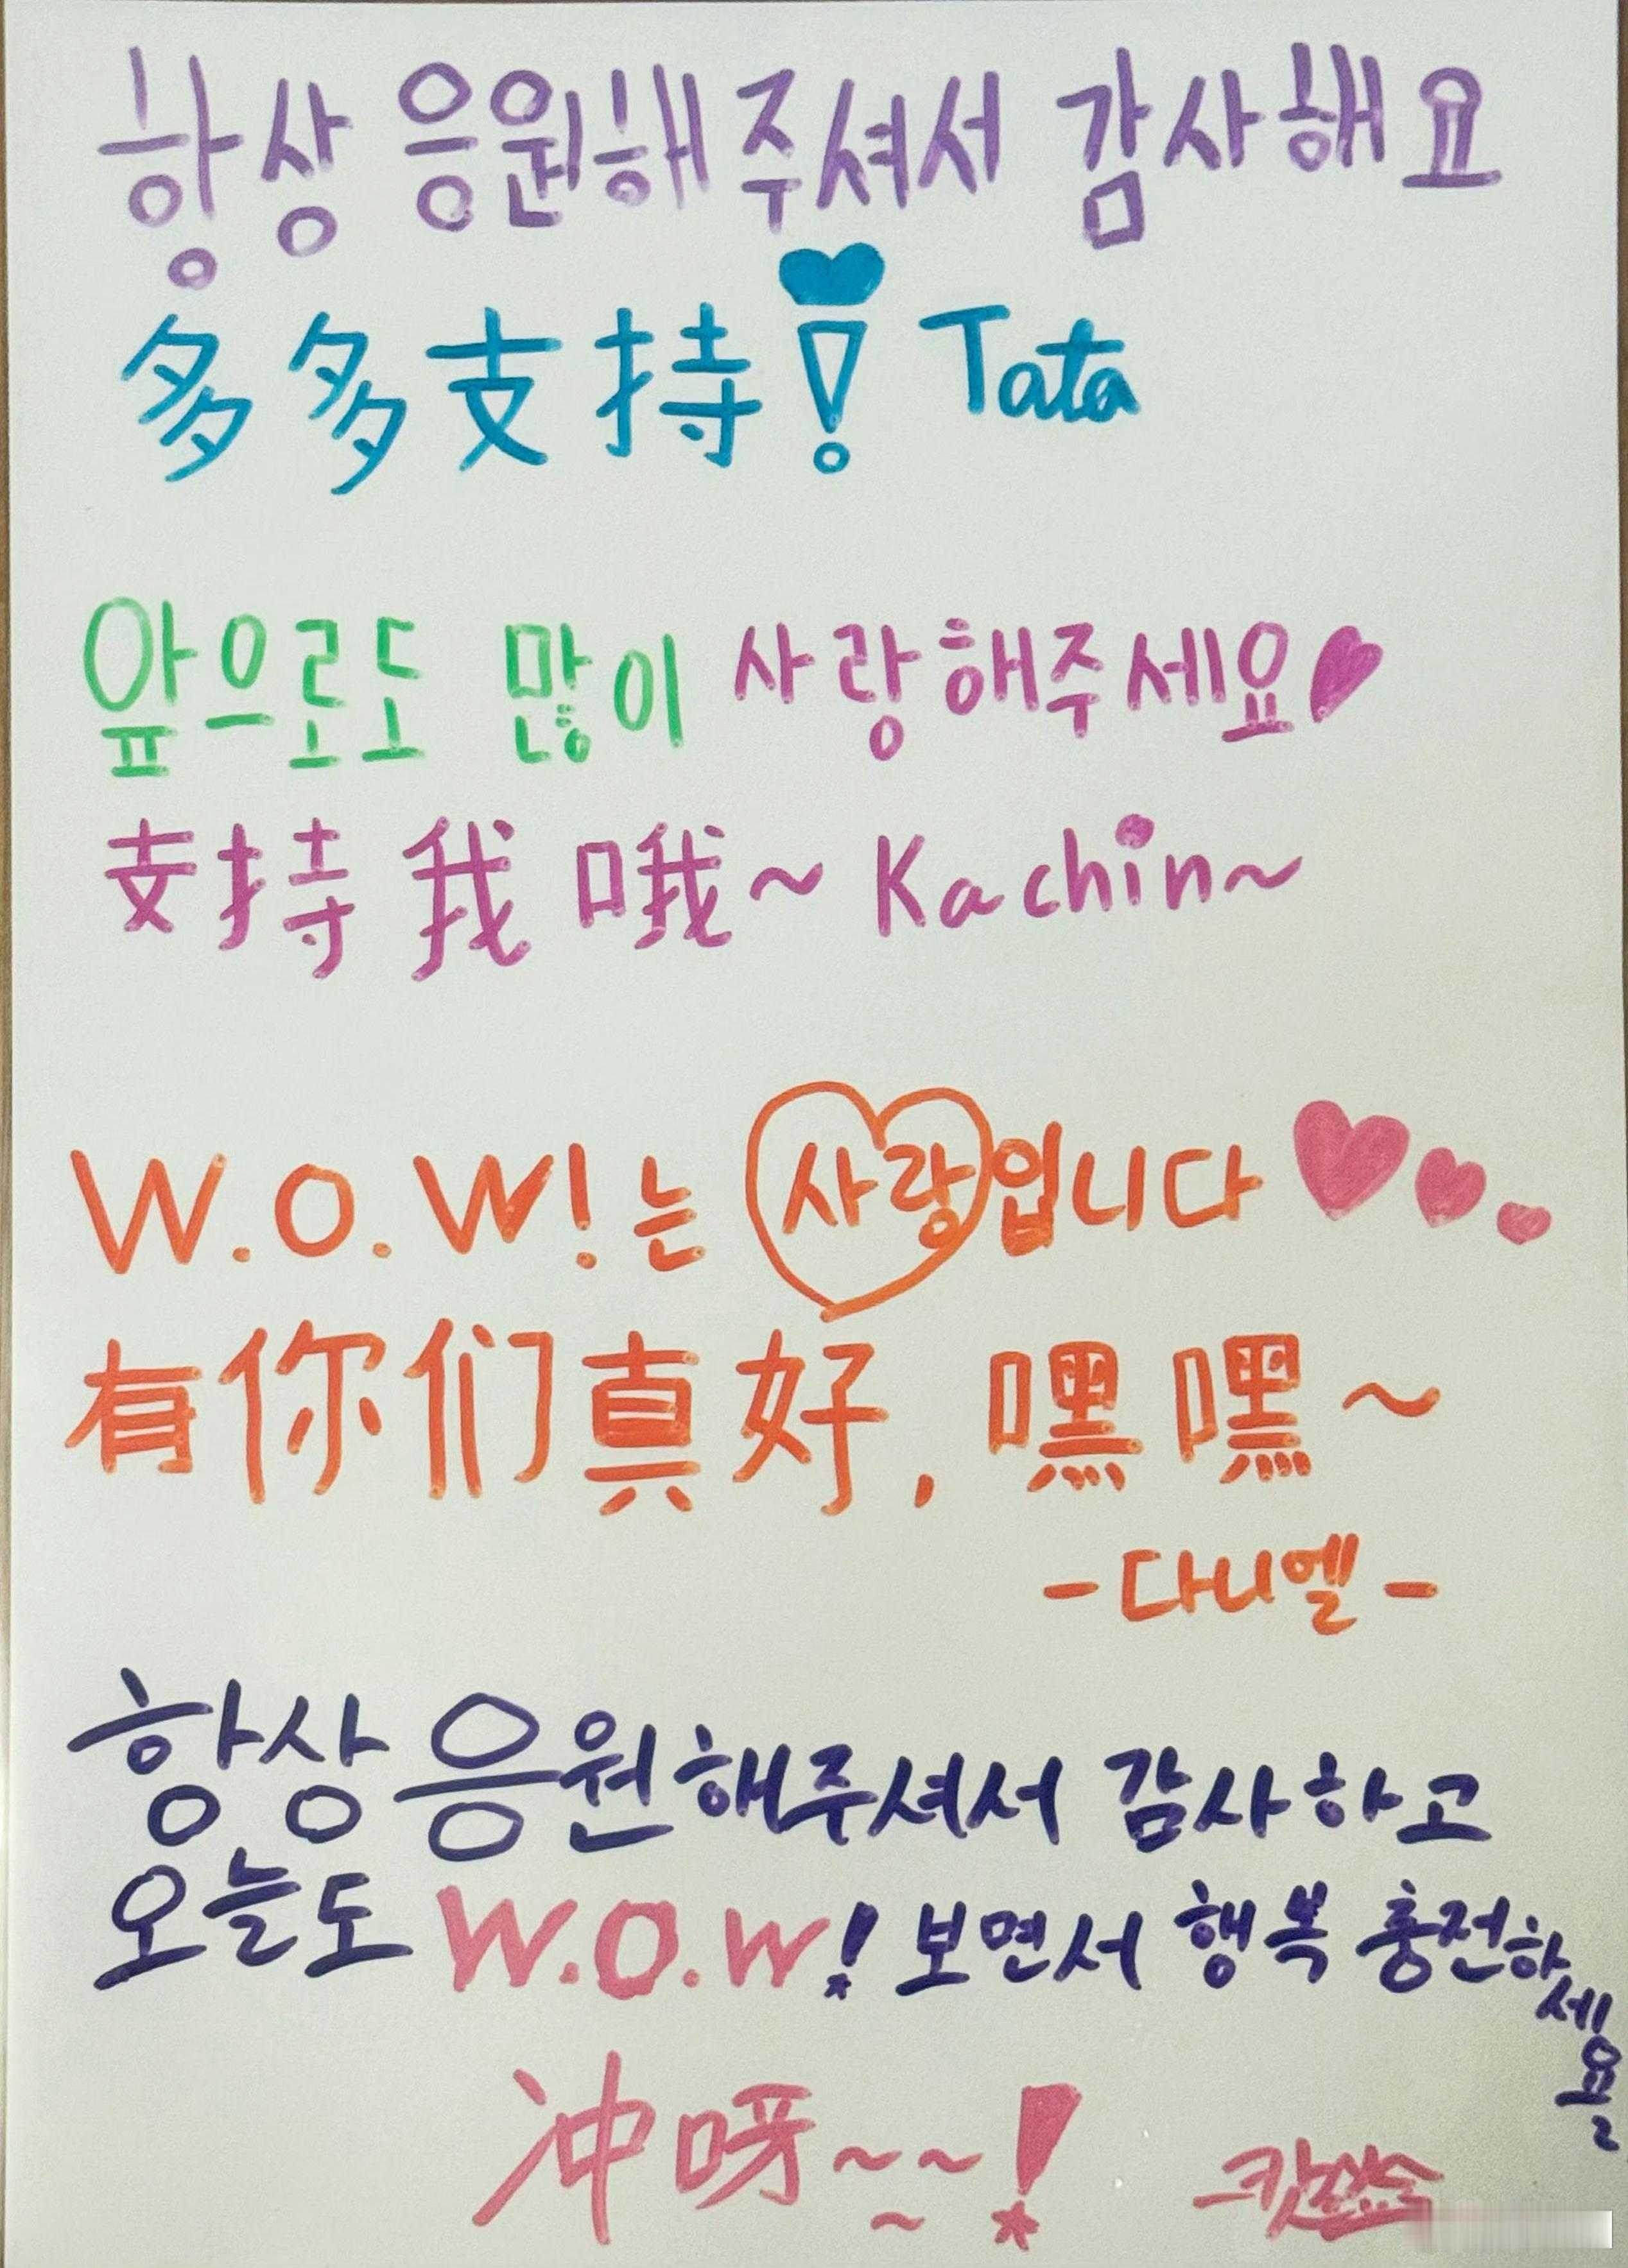 항상 응원해주셔서 감사해요
多多支持! Tata
앞으로도 많이 사랑해주세요
支持我哦~ Kachin~
W.O.W!는 사랑입니다
有你们真好，嘿嘿~
-다니엘-
항상 응원해주셔서 감사하고
오늘도 W.O.W! 보면서 행복 충전하세욜
冲呀~~~!